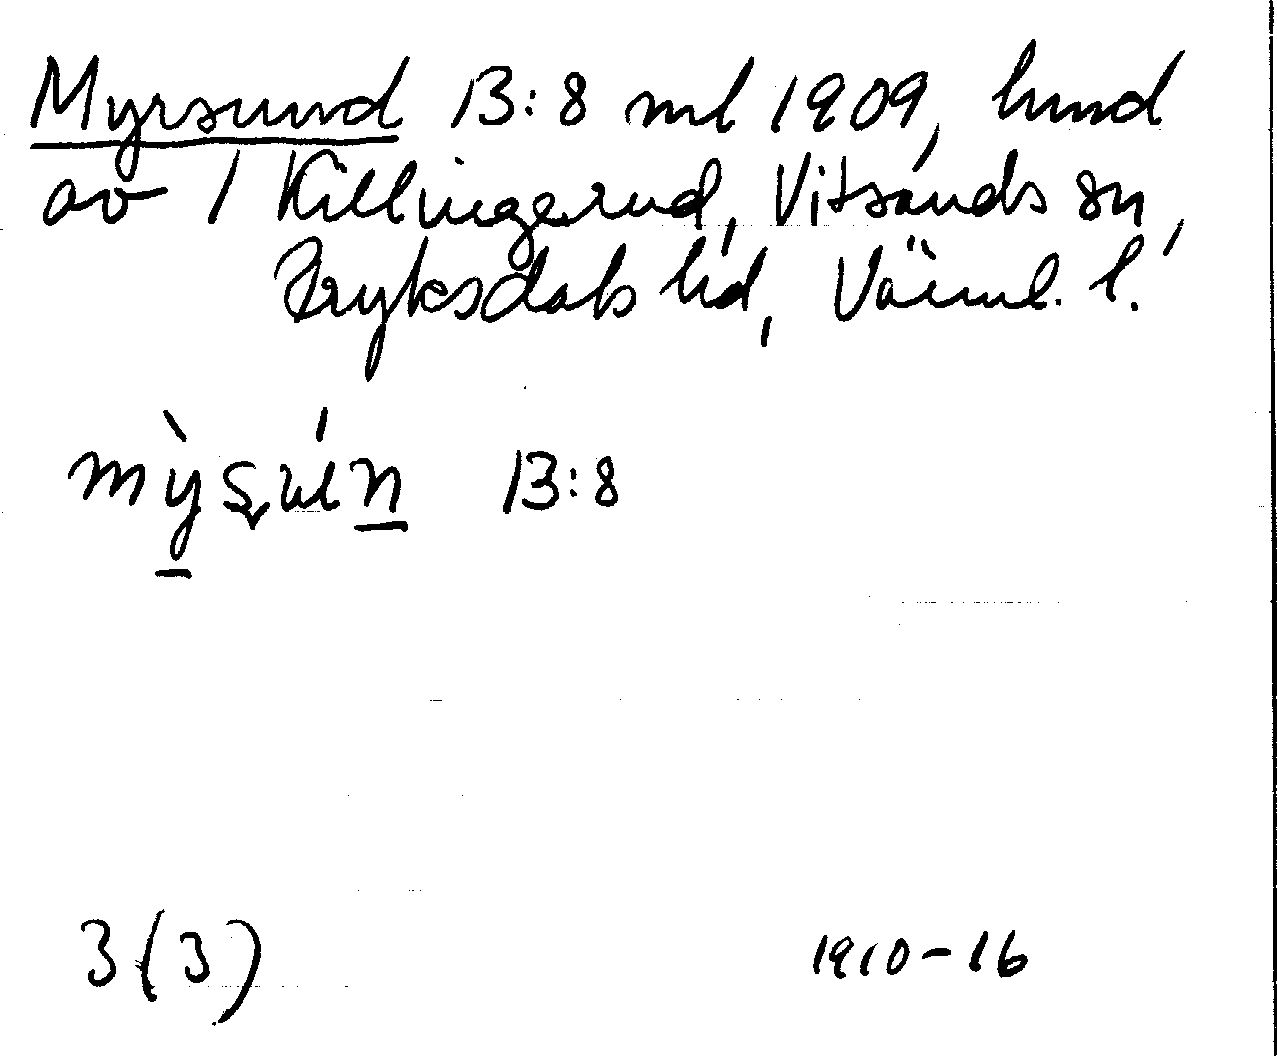 Myrsund 13:8 ml 1909, hmd
av 1 Killingerud, Vitsands sn,
Fryksdals hd, Värml. l.
13:8
3(3) 1910-16